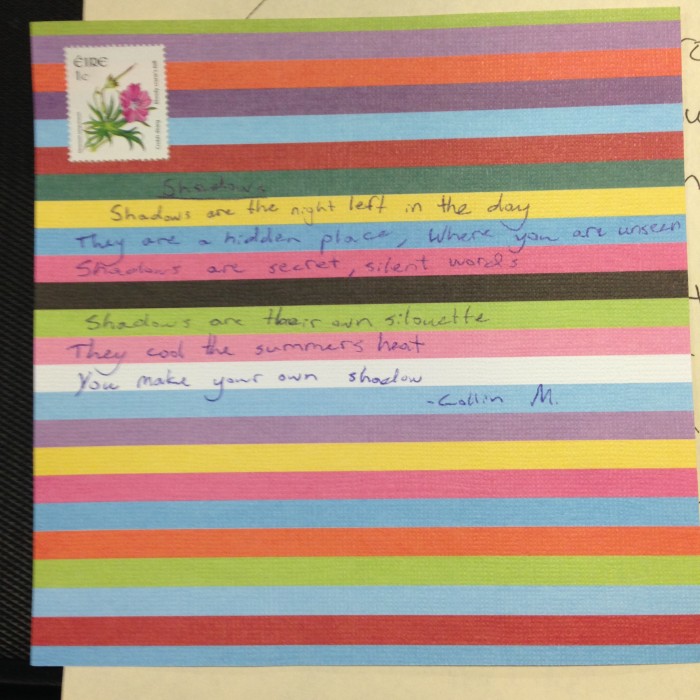 ÉIRE
1c
Shadows
Shadows are the night left in the day
They are a hidden place, Where you are unseen
Shadows are secret, silent words
Shadows are their own silouette
They cool the summers heat
You make your own shadow
-Collin M.